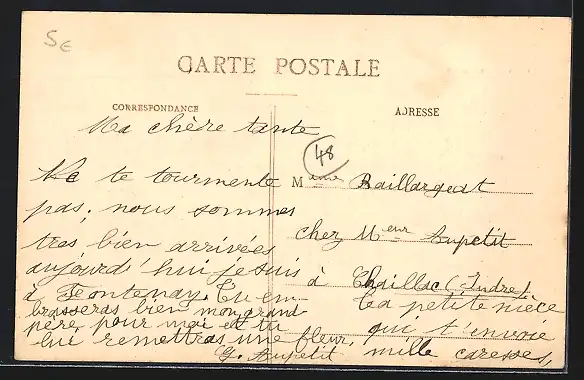 5€
CARTE POSTALE
CORRESPONDANCE
ADRESSE
48
Ma chère tante
Ne te tourmente
pas, nous sommes
tres bien arrivées
aujourd'hui je suis
à Fontenay. Tu em-
brasseras bien mon grand
père pour moi et tu
lui remettras une fleur,
Mame Baillargeat
chez Meur Aupetit
à Chaillac (Indre)
Ta petite nièce
qui t'envoie
mille caresses,
G. Aupetit